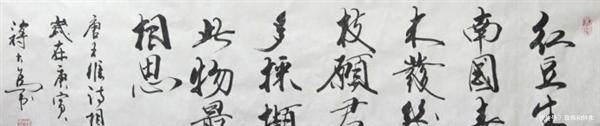 红豆生
南国春
来發幾
枝願君
多採擷
此物最
相思
唐王维诗相
歲在庚寅